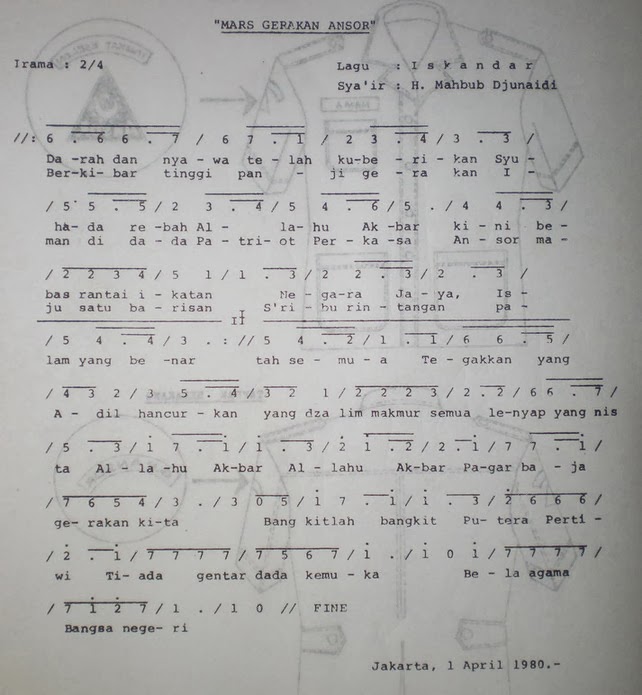 "MARS GERAKAN ANSOR"
Irama : 2/4
Lagu : I s k a n d a r
Sya'ir : H. Mahbub Djunaidi
//: 6 . 6 6 . 7 / 6 7 . 1 / 2 3 . 4 / 3 . 3 /
Da -rah dan nya - wa te - lah ku-be - ri - kan Syu -
Ber-ki- bar tinggi pan - ji ge - ra kan I -
/ 5 5 . 5 / 2 3 . 4 / 5 4 . 6 / 5 . / 4 4 . 3 /
ha- da re -bah Al - la- hu Ak -bar ki - ni be -
man di da - da Pa - tri- ot Per - ka -sa An - sor ma -
/ 2 2 3 4 / 5 1 / 1 . 3 / 2 2 . 3 / 2 . 3 /
bas rantai i - katan Ne - ga-ra Ja - ya, Is -
ju satu ba - risan S'ri - bu rin - tangan pa -
II
/ 5 4 . 4 / 3 . : // 5 4 . 2 / 1 . 1 / 6 6 . 5 /
lam yang be -nar tah se - mu - a Te - gakkan yang
/ 4 3 2 / 3 5 . 4 / 3 2 1 / 2 2 2 3 / 2 . 2 / 6 6 . 7 /
A - dil hancur - kan yang dza lim makmur semua le-nyap yang nis
/ 5 . 3 / 1 7 . 1 / 1 . 3 / 2 1 . 2 / 2 . 1 / 7 7 . 1 /
ta Al - la -hu Ak-bar Al - lahu Ak-bar Pa-gar ba - ja
/ 7 6 5 4 / 3 . / 3 0 5 / 1 7 . 1 / 1 . 3 / 2 6 6 6 /
ge- rakan ki-ta Bang kitlah bangkit Pu- tera Perti -
/ 2 . 1 / 7 7 7 7 / 7 5 6 7 / 1 . / 1 0 1 / 7 7 7 7 /
wi Ti- ada gentar dada kemu - ka Be - la agama
/ 7 1 2 7 / 1 . / 1 0 // FINE
Bangsa nege- ri
Jakarta, 1 April 1980.-